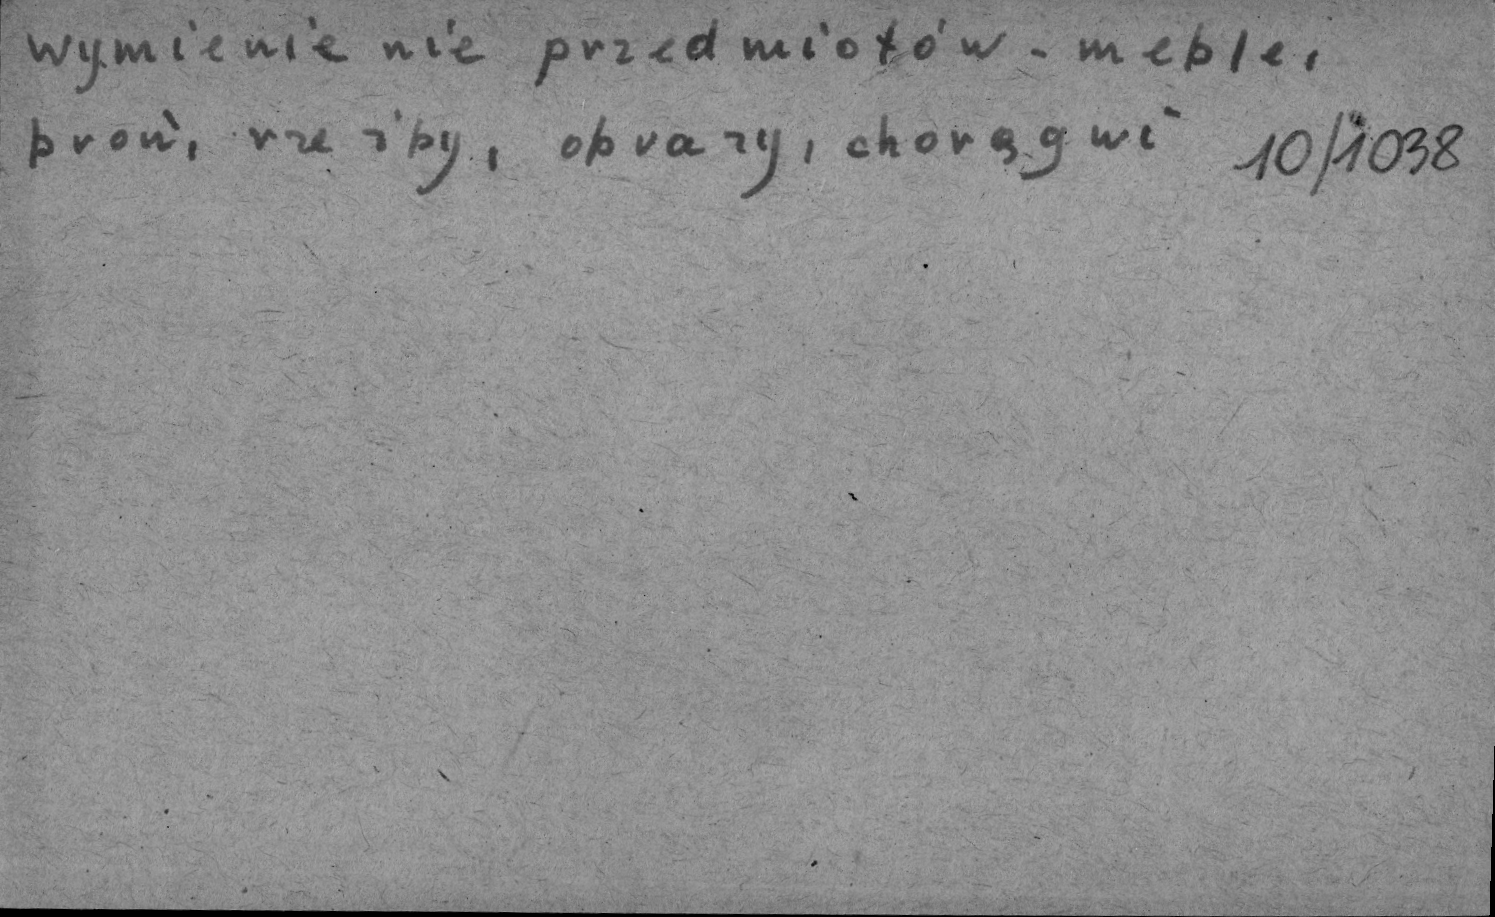 wymienienie przedmiotów - meble,
broń, rzeźby, obrazy, chorągwi 10/1038